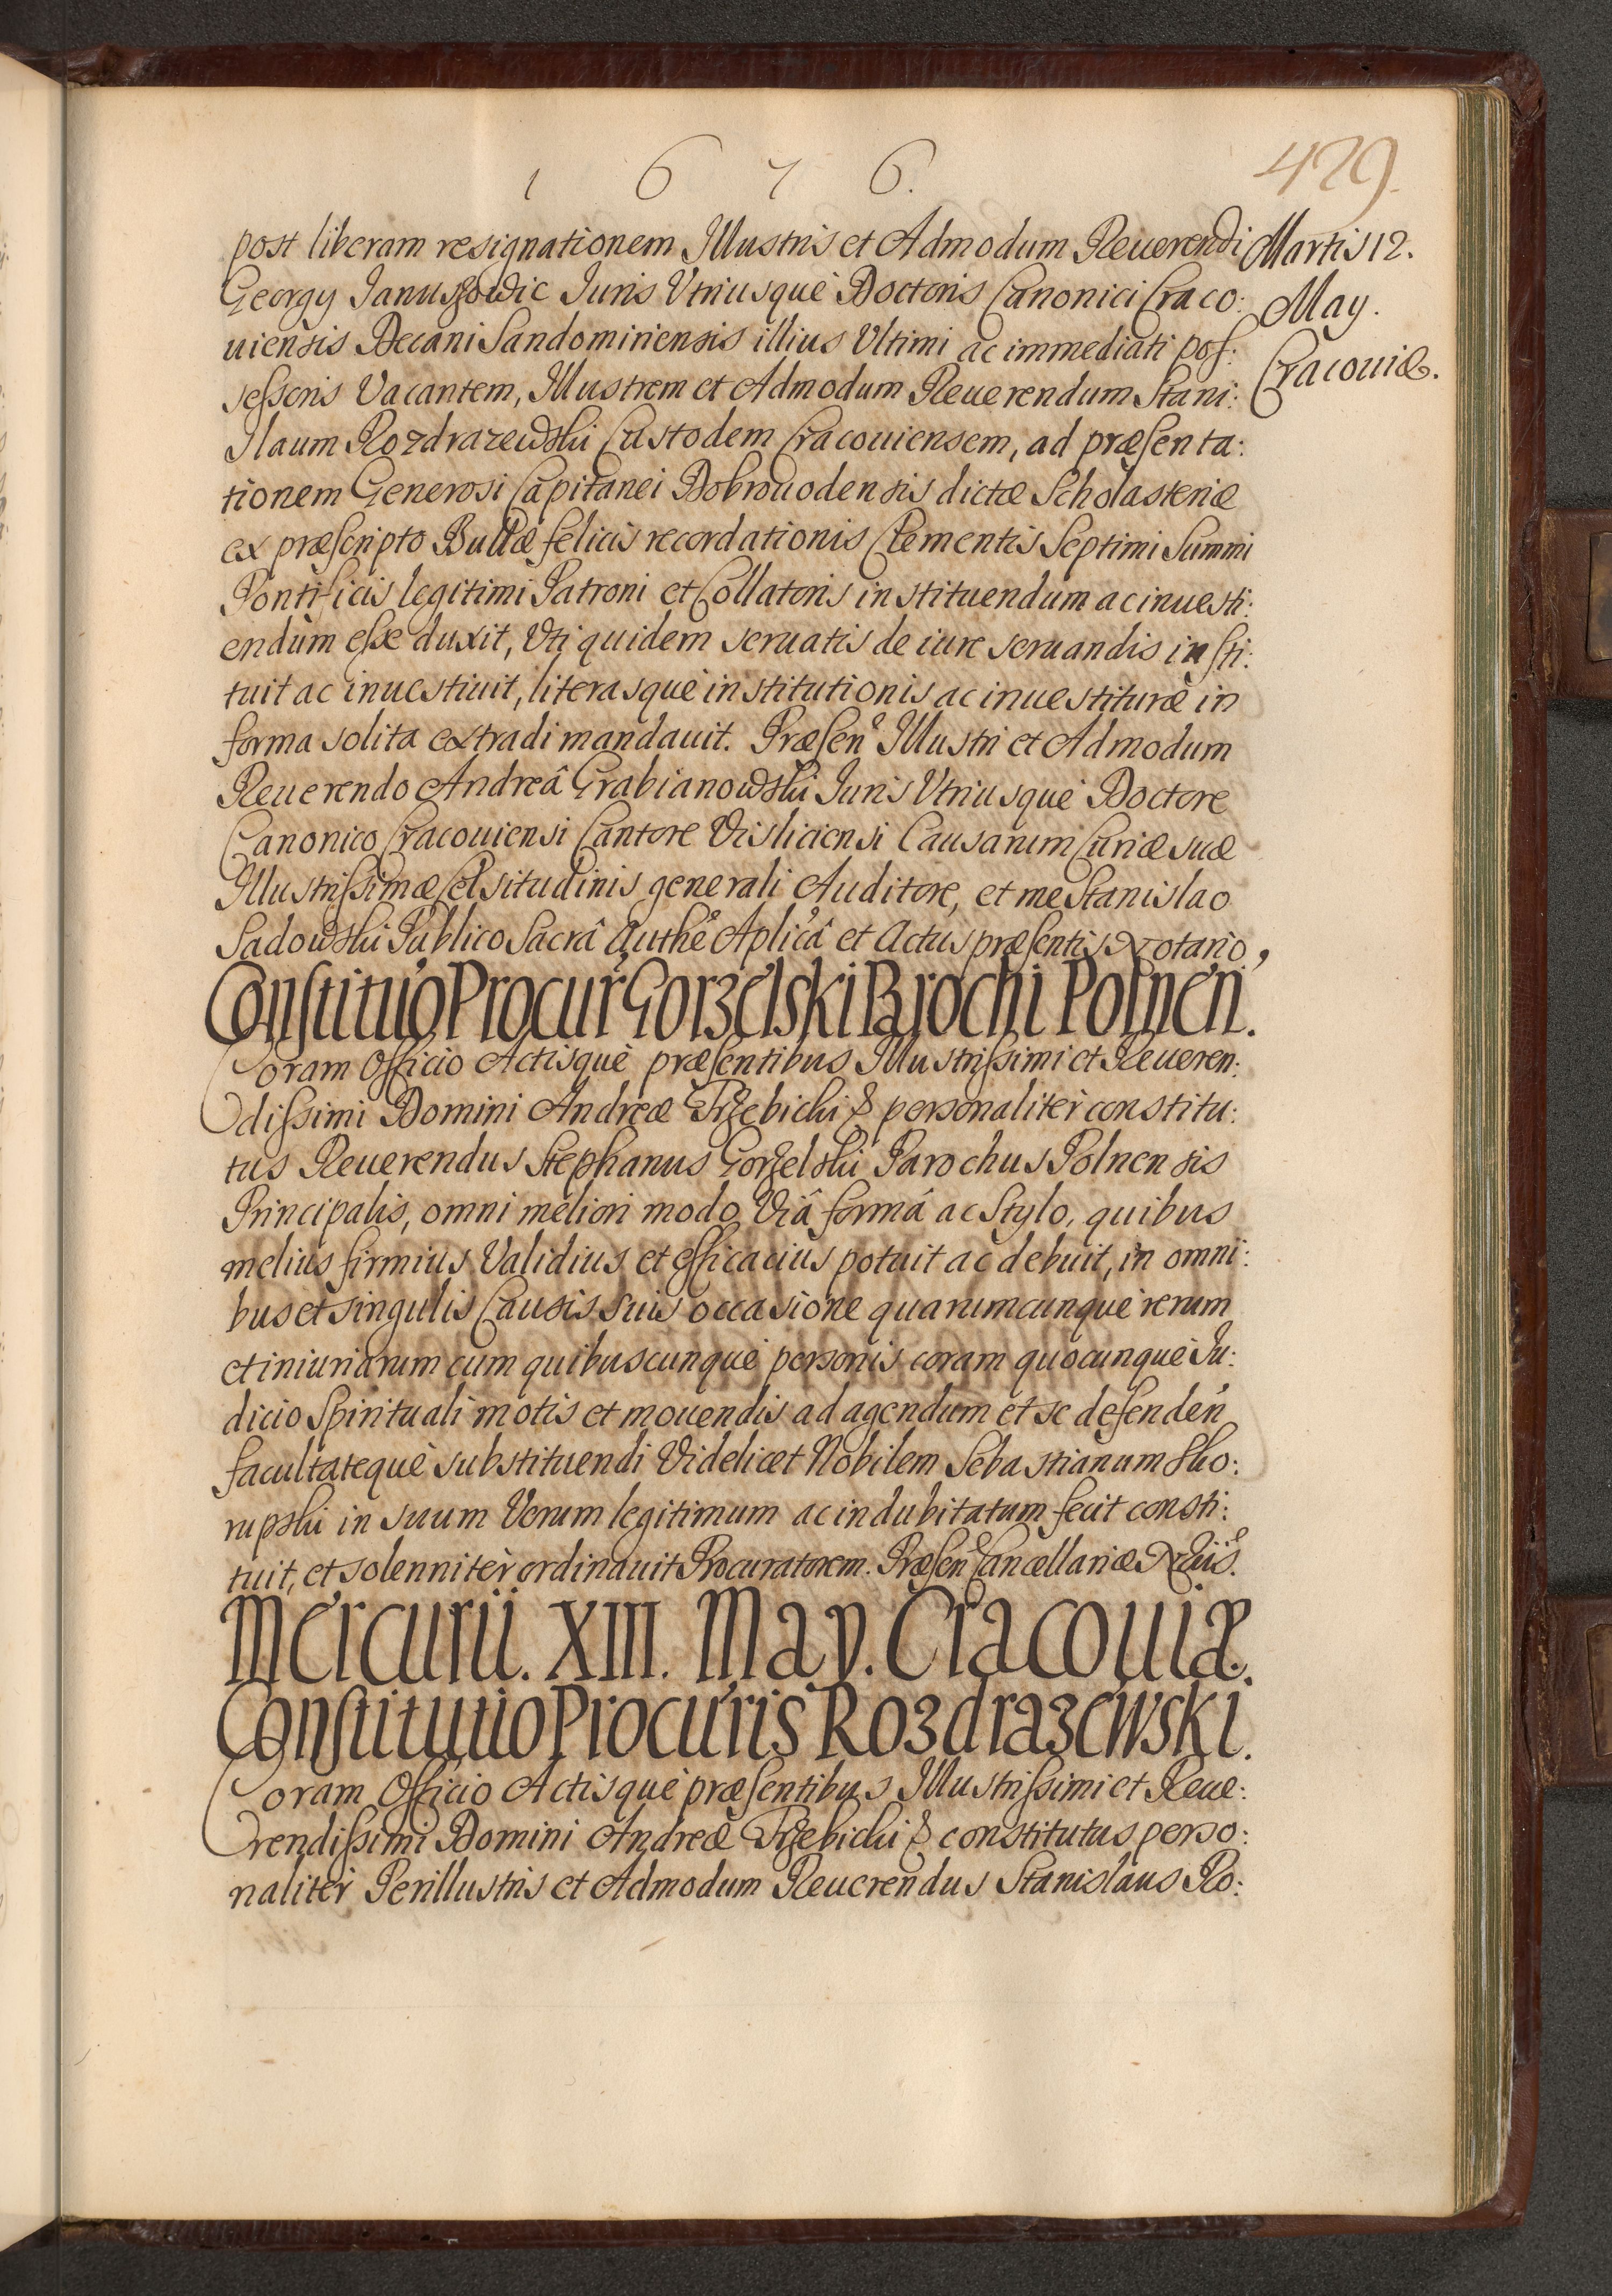 1676.
429.
post liberam resignationem Illustris et Admodum Reuerendi
Martis 12.
Georgy Januszowic Iuris Vtriusque Doctoris Canonici Craco:
May.
uiensis Decani Sandomiriensis illius Vltimi ac immediati pos:
Cracouiæ.
sessoris Vacantem, Illustrem et Admodum Reuerendum Stani:
slaum Rozdrazewski Custodem Cracouiensem, ad præsenta:
tionem Generosi Capitanei Dobrouodensis dictæ Scholasteriæ
ex præscripto Bullæ felicis recordationis Clementis Septimi Summi
Pontificis legitimi Patroni et Collatoris instituendum ac inuesti:
endum esse duxit, Vti quidem seruatis de iure seruandis insti:
tuit ac inuestiuit, literasque institutionis ac inuestituræ in
forma solita extradi mandauit. Præsen Illustri et Admodum
Reuerendo Andreâ Grabianowski Iuris Vtriusque Doctore
Canonico Cracouiensi Cantore Visliciensi Causarum Curiæ suæ
Illustrissimæ Celsitudinis generali Auditore, et me Stanislao
Sadowski Publico Sacrâ Authe Aplicâ et Actus præsentis Notario.
Constituo Procur Gorzelski Parochi Polnen.
Coram Officio Actisque præsentibus Illustrissimi et Reueren:
dissimi Domini Andreæ Trzebicki & personaliter constitu:
tus Reuerendus Stephanus Gorzelski Parochus Polnensis
Principalis, omni meliori modo Viâ formâ ac Stylo, quibus
melius firmius Validius et efficacius potuit ac debuit, in omni:
bus et singulis Causis suis occasione quarumcunque rerum
et iniuriarum cum quibuscunque personis coram quocunque Iu:
dicio Spirituali motis et mouendis ad agendum et se defenden
facultateque substituendi Videlicet Nobilem Sebastianum Sko:
rupski in suum Verum legitimum ac indubitatum fecit consti:
tuit, et solenniter ordinauit Procuratorem. Præsen Cancellariæ Nriis.
Mercurii. XIII. May. Cracouiæ.
Constitutio Procuris Rozdrazewski.
Coram Officio Actisque præsentibus Illustrissimi et Reue:
rendissimi Domini Andreæ Trzebicki & constitutus perso:
naliter Perillustris et Admodum Reuerendus Stanislaus Ro: